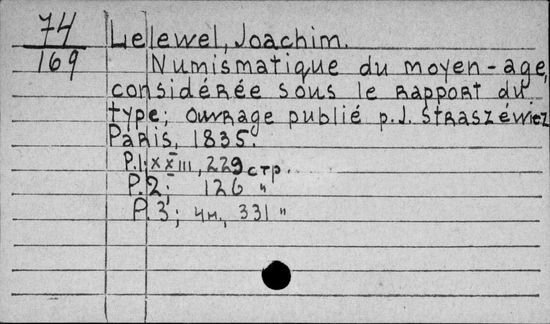 74
169
Lelewel, Joachim.
Numismatique du moyen-age,
considérée sous le rapport du
type; ouvrage publié p. J. Straszéwiez
Paris, 1835.
P.1; XXIII, 229 стр.
P.2; 126 "
P.3; 4н., 331 "